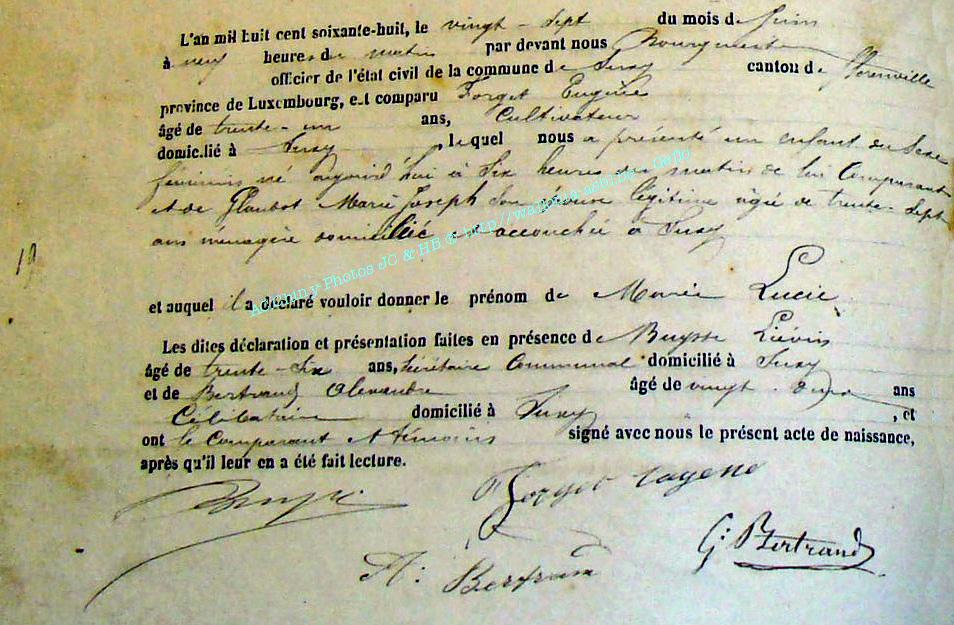 L'an mil huit cent soixante-huit, le vingt-sept du mois de Juin
à neuf heures de matin par devant nous Bourgmestre
officier de l'état civil de la commune de Suxy canton de Florenville
province de Luxembourg, est comparu Forget Eugène
âgé de trente-un ans, Cultivateur
domicilié à Suxy, lequel nous a présenté un enfant du Sexe
féminin né aujourd'hui à Six heures du matin de lui Comparant
et de Marie Joseph Son épouse légitime âgée de trente-Sept
ans ménagère domiciliée et accouchée à Suxy
19
et auquel il a déclaré vouloir donner le prénom de Marie Lucie
Les dites déclaration et présentation faites en présence de Buysse Liévin
âgé de trente-Six ans, Sécrétaire Communal domicilié à Suxy
et de Bertrand Alexandre âgé de vingt ans
Célibataire domicilié à Suxy, et
ont le Comparant et témoins signé avec nous le présent acte de naissance,
après qu'il leur en a été fait lecture.
Forget
G: Bertrand
A: Bertrand
Photos JC & HB @ http://